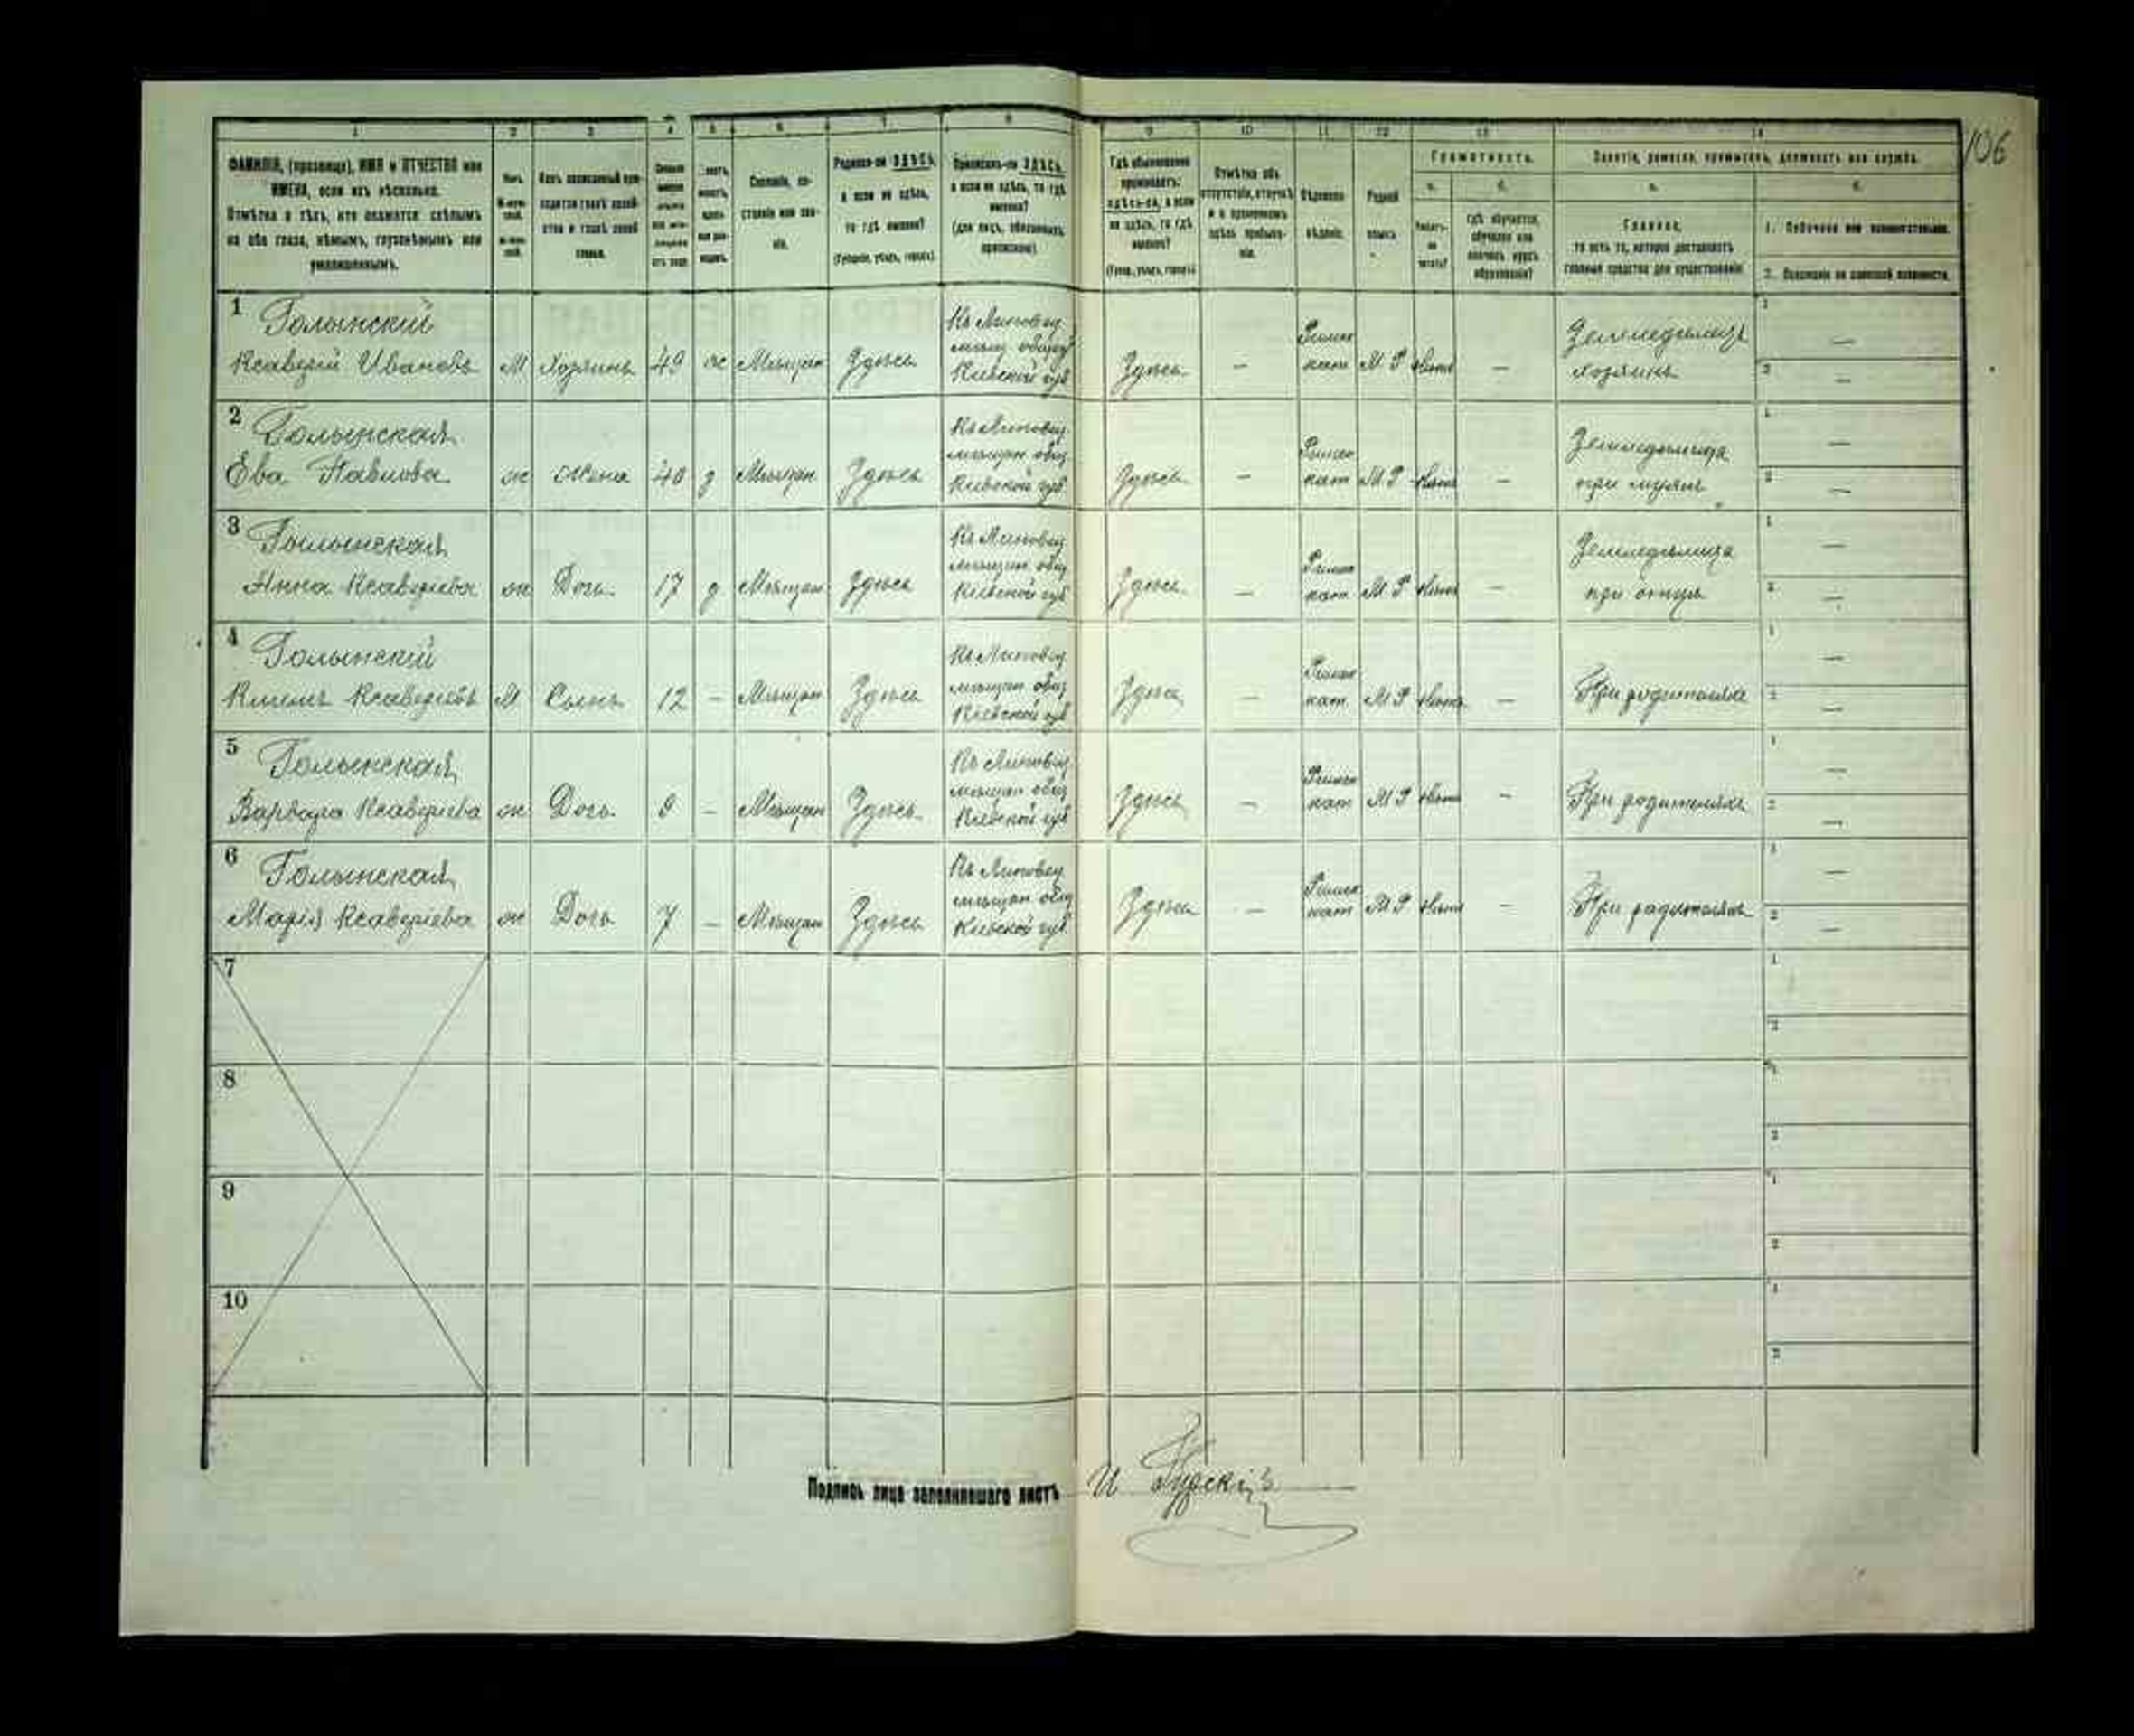 106
1 2 3 4 5 6 7 8 9 10 11 12 13 14
ФАМИЛІЯ, (прозвище), ИМЯ и ОТЧЕСТВО или
ИМЕНА, если ихъ нѣсколько.
Отмѣтка о тѣхъ, кто окажется: слѣпымъ
на оба глаза, нѣмымъ, глухонѣмымъ или
умалишеннымъ.
Родился-ли ЗДѢСЬ,
а если не здѣсь,
то гдѣ именно?
(Губернія, уѣздъ, городъ).
Приписанъ-ли ЗДѢСЬ,
а если не здѣсь, то гдѣ
именно?
(для лицъ, обязанныхъ
припискою)
Гдѣ обыкновенно
проживаетъ:
здѣсь-ли, а если
не здѣсь, то гдѣ
именно?
(Губер., уѣздъ, городъ).
Отмѣтка объ
отсутствіи, отлучкѣ
и о временномъ
здѣсь пребыва-
ніи.
Вѣроиспо-
вѣданіе.
Родной
языкъ
Грамотность.
а.
б.
Гдѣ обучается,
обучался или
кончилъ курсъ
образованія?
Занятіе, ремесло, промыселъ, должность или служба.
а.
б.
Главное,
то есть то, которое доставляетъ
главныя средства для существованія
1. Побочное или вспомогательное.
2. Положеніе по воинской повинности.
1 Голынскій
Ксаверій Ивановъ М Хозяинъ 49 ж Мѣщан Здѣсь
Къ Липовец.
Кіевской губ
Здѣсь — кат М Р Нѣтъ —
Земледѣлецъ
хозяинъ
1 —
2 —
2 Голынская
Ева Павлова ж Жена 40 з Мѣщан Здѣсь
Къ Липовец
мѣщан общ
Кіевской губ
Здѣсь — кат М Р Нѣтъ —
Земледѣлица
при мужѣ
1 —
2 —
3 Голынская
Анна Ксаверіева ж Дочь 17 д Мѣщан Здѣсь
Къ Липовец
мѣщан общ
Кіевской губ
Здѣсь — кат М Р Нѣтъ —
Земледѣлица
при отцѣ
1 —
2 —
4 Голынскій
Ксаверіевъ М Сынъ 12 — Мѣщан Здѣсь
Къ Липовец
мѣщан общ
Кіевской губ
Здѣсь — кат М Р Нѣтъ —
При родителяхъ
1 —
2 —
5 Голынская
Варвара Ксаверіева ж Дочь 9 — Мѣщан Здѣсь
Къ Липовец
мѣщан общ
Кіевской губ
Здѣсь — кат М Р Нѣтъ —
При родителяхъ
1 —
2 —
6 Голынская
Марія Ксаверіева ж Дочь 7 — Мѣщан Здѣсь
Къ Липовец
мѣщан общ
Кіевской губ
Здѣсь — кат М Р Нѣтъ —
При родителяхъ
1 —
2 —
7
1
2
8
1
2
9
1
2
10
1
2
Подпись лица заполнившаго листъ И